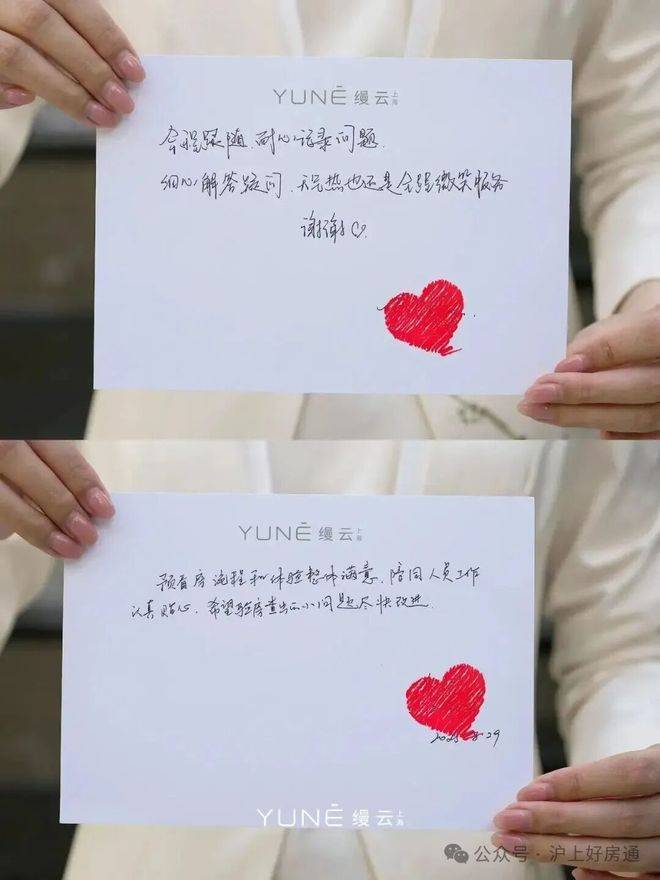 YUNĒ 缦云 上海
全程跟随，耐心记录问题．
细心解答疑问，天气热也还是全程微笑服务
谢谢♡．
YUNĒ 缦云 上海
预看房流程和体验整体满意，陪同人员工作
认真贴心．希望验房查出的小问题尽快改进．
YUNĒ 缦云 上海
公众号·沪上好房通